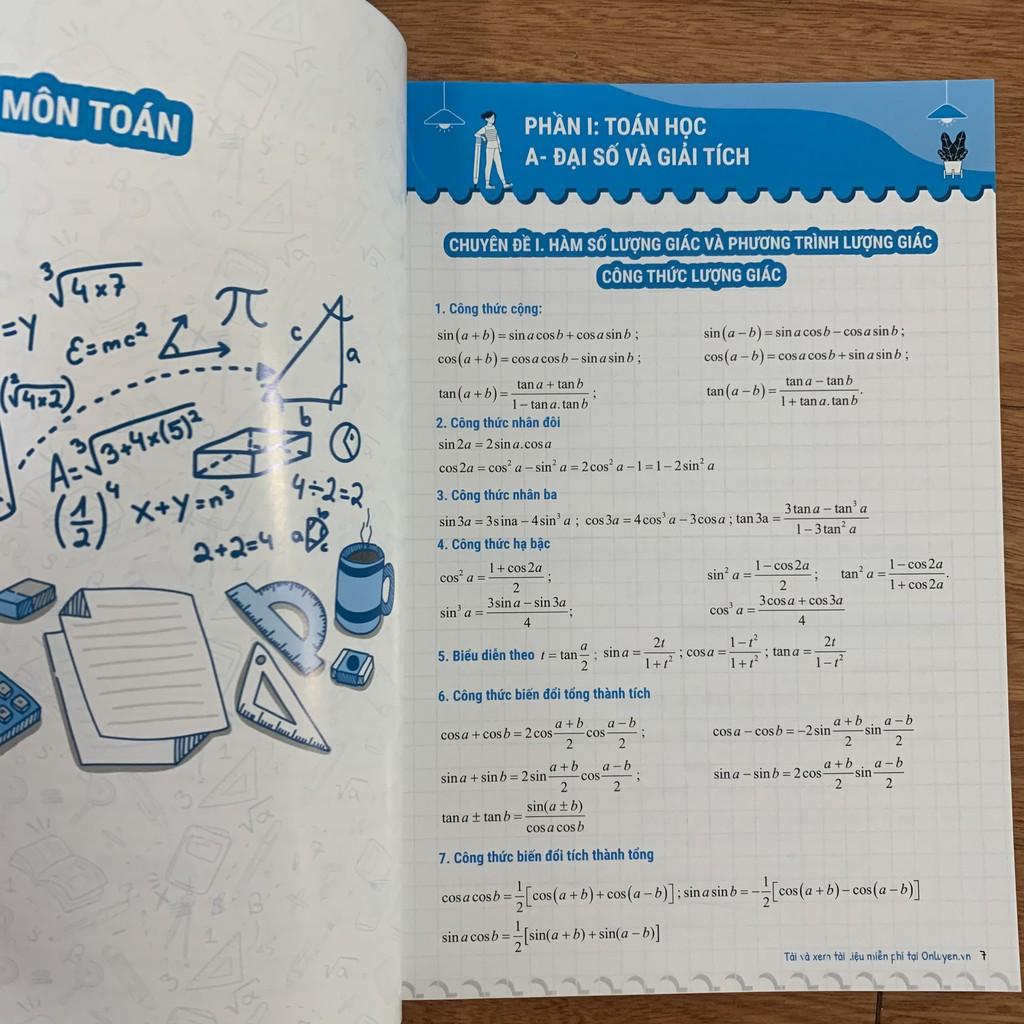 MÔN TOÁN
∛4×7
=Y
ε=mc²
π
c
a
b
(∛4×2)
A=∛3+4×(5)²
(1/2)⁴ x+y=n³
4÷2=2
2+2=4
a b c
PHẦN I: TOÁN HỌC
A- ĐẠI SỐ VÀ GIẢI TÍCH
CHUYÊN ĐỀ I. HÀM SỐ LƯỢNG GIÁC VÀ PHƯƠNG TRÌNH LƯỢNG GIÁC
CÔNG THỨC LƯỢNG GIÁC
1. Công thức cộng:
sin(a+b)=sin a cos b+cos a sin b; sin(a−b)=sin a cos b−cos a sin b;
cos(a+b)=cos a cos b−sin a sin b; cos(a−b)=cos a cos b+sin a sin b;
tan(a+b)=(tan a+tan b)/(1−tan a.tan b); tan(a−b)=(tan a−tan b)/(1+tan a.tan b).
2. Công thức nhân đôi
sin 2a=2sin a.cos a
cos 2a=cos² a−sin² a=2cos² a−1=1−2sin² a
3. Công thức nhân ba
sin 3a=3sina−4sin³ a; cos 3a=4cos³ a−3cos a; tan 3a=(3tan a−tan³ a)/(1−3tan² a)
4. Công thức hạ bậc
cos² a=(1+cos 2a)/2; sin² a=(1−cos 2a)/2; tan² a=(1−cos 2a)/(1+cos 2a).
sin³ a=(3sin a−sin 3a)/4; cos³ a=(3cos a+cos 3a)/4
5. Biểu diễn theo t=tan a/2; sin a=2t/(1+t²); cos a=(1−t²)/(1+t²); tan a=2t/(1−t²)
6. Công thức biến đổi tổng thành tích
cos a+cos b=2cos (a+b)/2 cos (a−b)/2; cos a−cos b=−2sin (a+b)/2 sin (a−b)/2
sin a+sin b=2sin (a+b)/2 cos (a−b)/2; sin a−sin b=2cos (a+b)/2 sin (a−b)/2
tan a±tan b=sin(a±b)/(cos a cos b)
7. Công thức biến đổi tích thành tổng
cos a cos b=1/2[cos(a+b)+cos(a−b)]; sin a sin b=−1/2[cos(a+b)−cos(a−b)]
sin a cos b=1/2[sin(a+b)+sin(a−b)]
Tải và xem tài liệu miễn phí tại Onluyen.vn 7